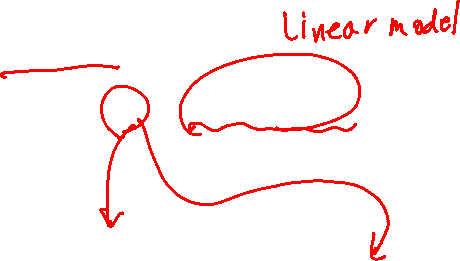 Linear model